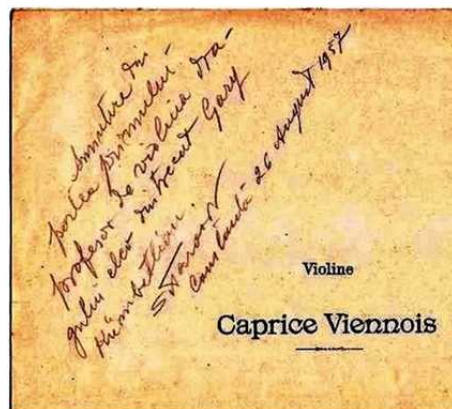 Amintire din
partea primului
profesor de violina dra-
gului elev din trecut Gary
Constanta 26 August 1957
Violine
Caprice Viennois